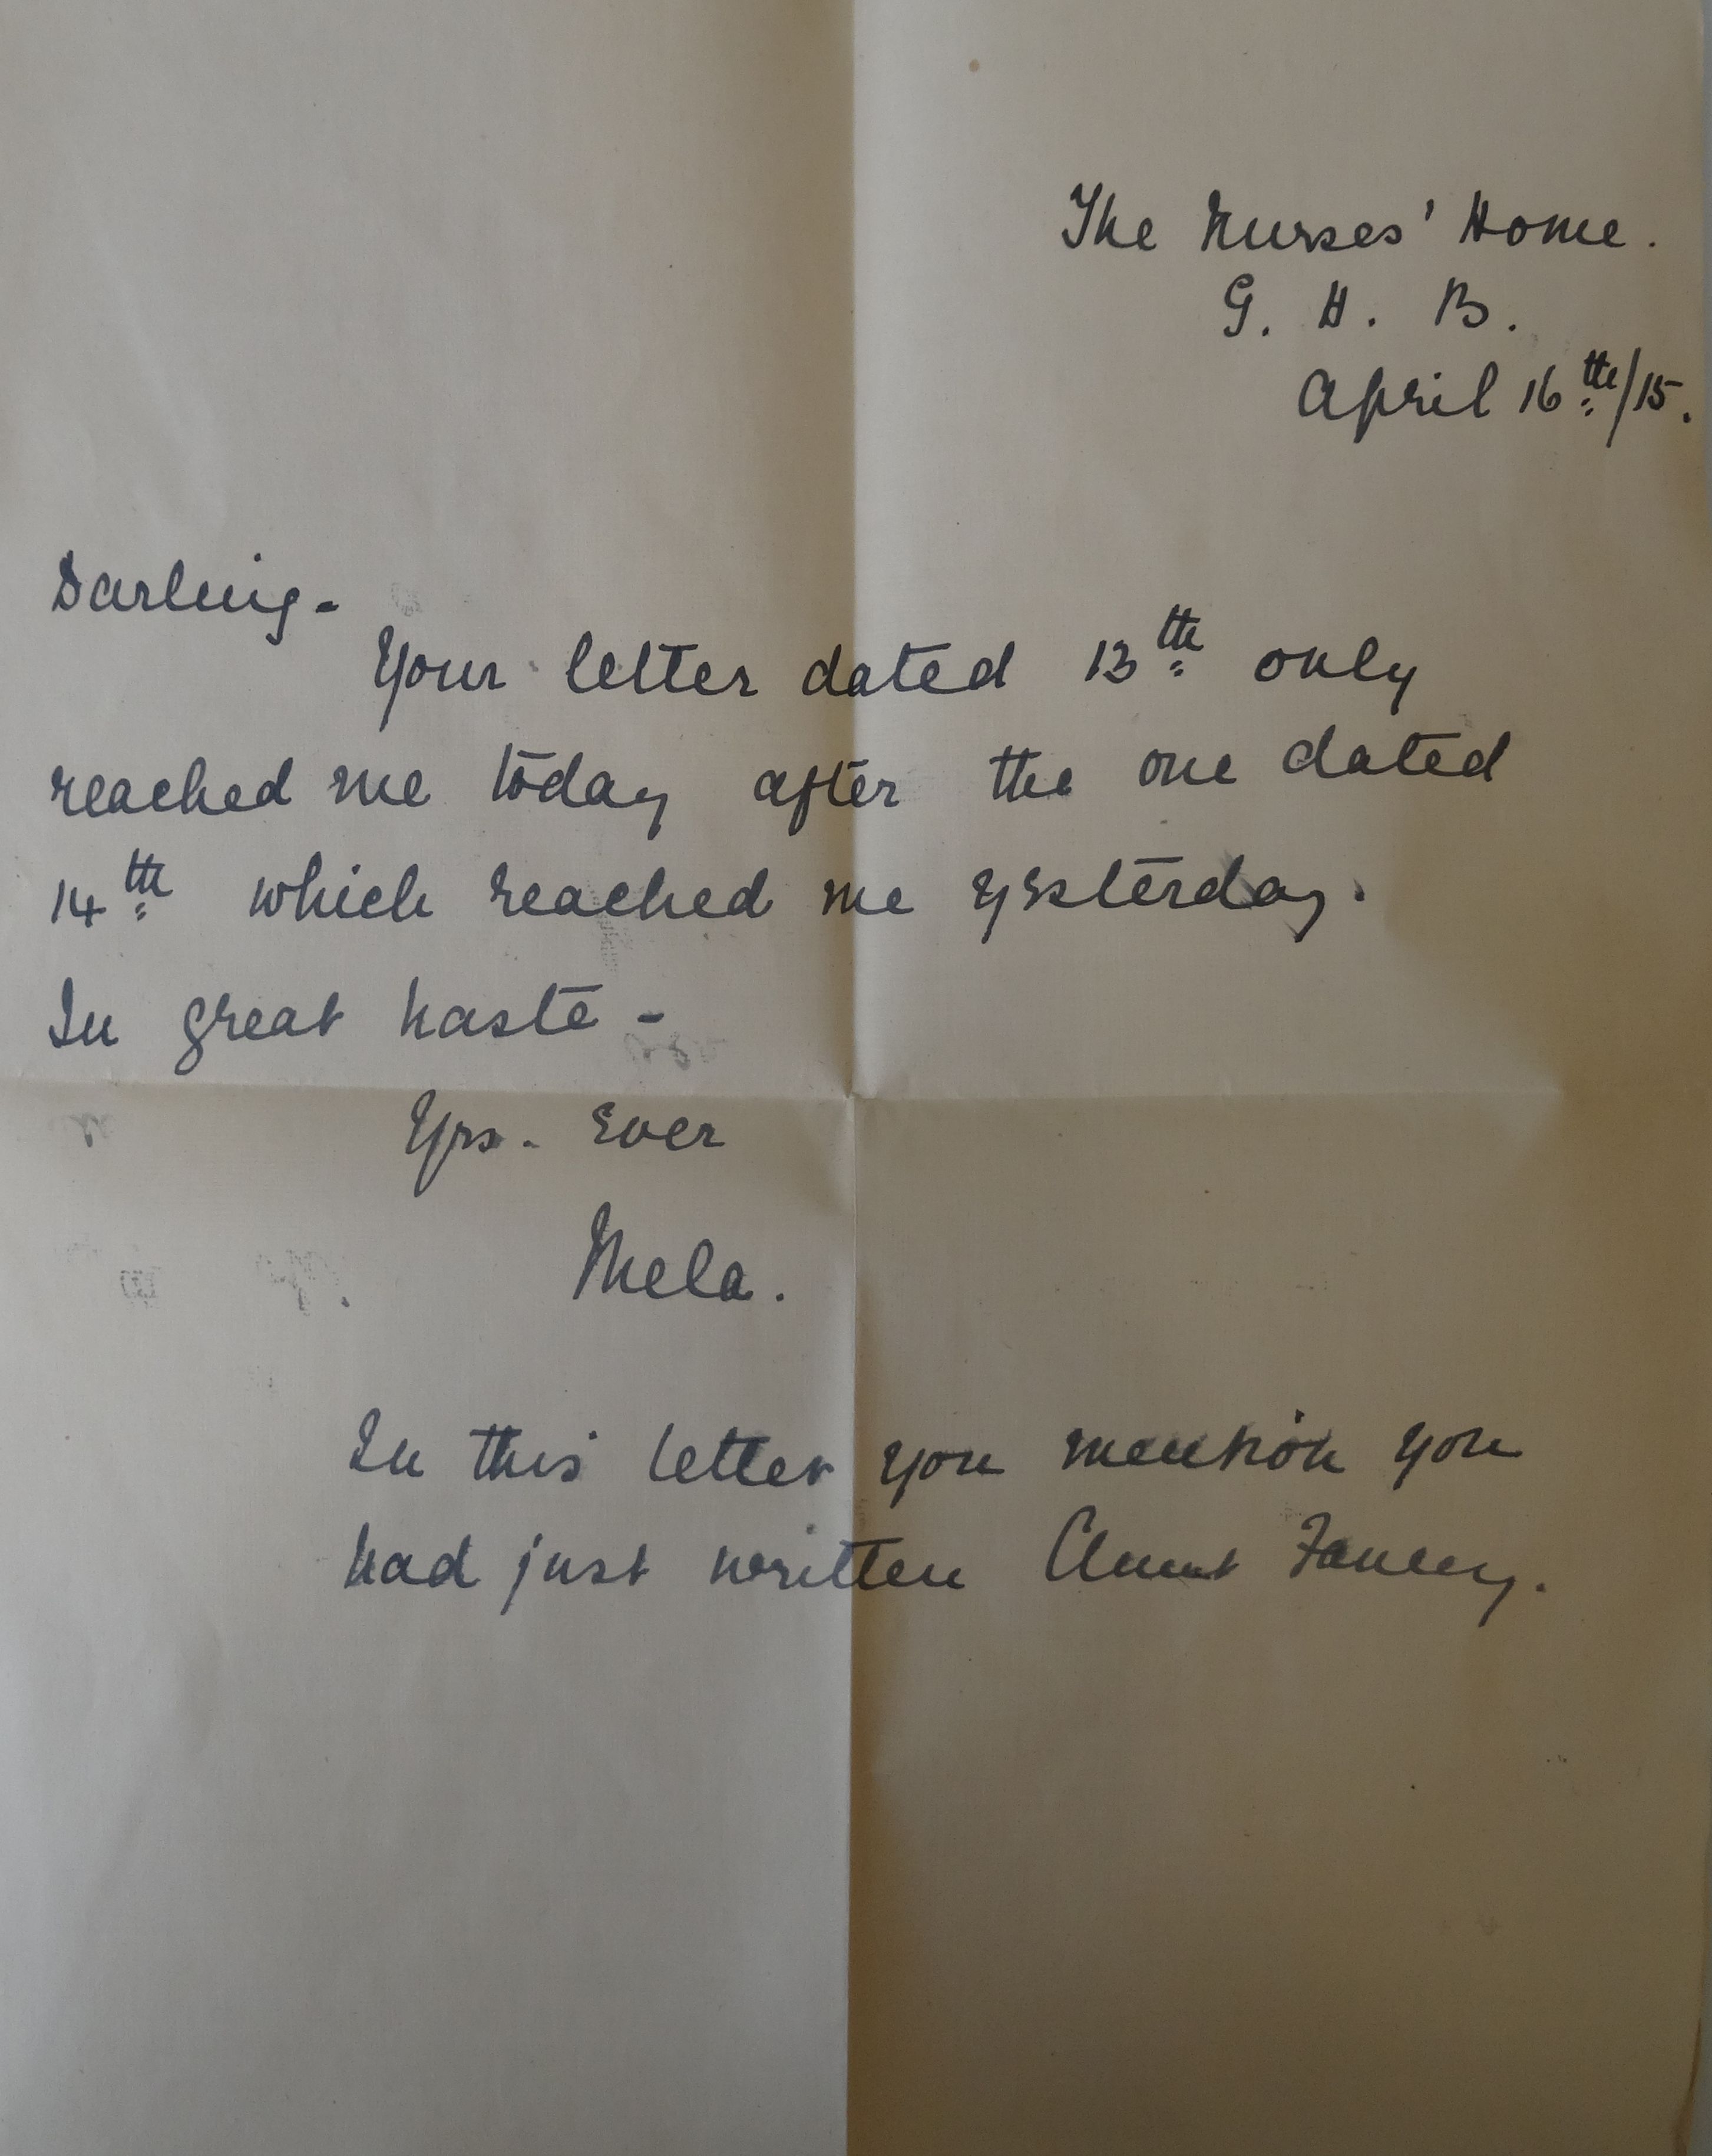 The Nurses' Home.
G. H. B.
April 16th/15.
Darling-
Your letter dated 13th only
reached me today after the one dated
14th which reached me yesterday.
In great haste -
Yrs. Ever
Mela.
In this letter you mention you
had just written Aunt Fanny.